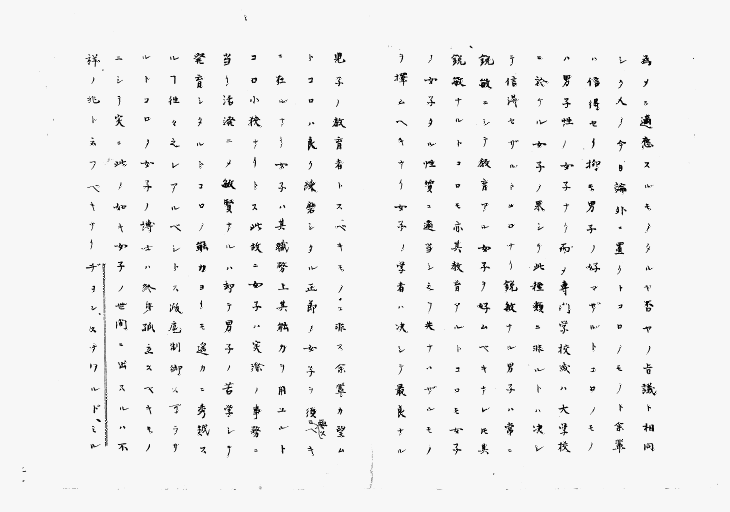 為メニ適應スルモノタルヤ否ヤノ旨議ト相同
シク人ノ今日論外ニ置クトコロノモノト余輩
ハ信得セリ抑モ男子ノ好マザルトコロノモノ
ハ男子性ノ女子ナリ而メ専門学校或ハ大学校
ニ於ケル女子ノ果シテ此種類ニ非ルトハ決シ
テ信得セザルトコロナリ鋭敏ナル男子ハ常ニ
鋭敏ニシテ教育アル女子ヲ好ムベキナレ𪜈其
鋭敏ナルトコロモ亦其教育アルトコロモ女子
ノ女子タル性質ニ適当シテ失ハザルモノ
ヲ擇ムベキナリ女子ノ学者ハ決シテ最良ナル
児子ノ教育者トスベキモノニ非ス余輩カ望ム
トコロハ良ク練磨シタル正節ノ女子ヲ得ベキ
ニ在ルナリ女子ハ其職務上其能力ヲ用ユルト
コロ小狭ナリトス此故ニ女子ハ実際ノ事務ニ
当リ活溌ニメ敏賢ナルハ却テ男子ノ苦学シテ
発育シタルトコロノ能力ヨリモ遙カニ秀越ス
ルヿ往々之レアルベシトス故尾制御スベラザ
ルトコロノ女子ノ博士ハ終年孤立スベキモノ
ニシテ実ニ此ノ如キ女子ノ世間ニ出スルハ不
祥ノ兆ト云フベキナリヂョン、スチワルド、ミル